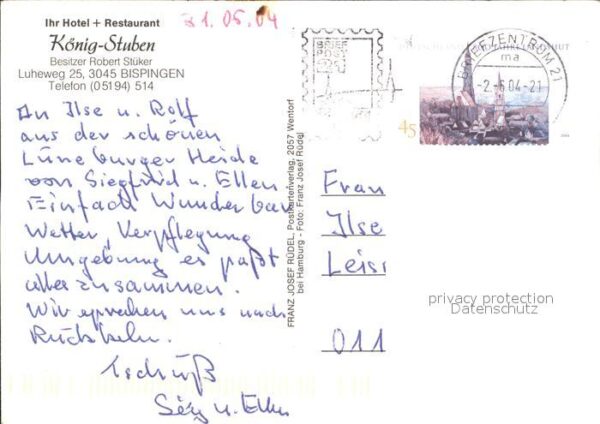 31.05.04
Ihr Hotel + Restaurant
König-Stuben
Besitzer Robert Stüker
Luheweg 25, 3045 BISPINGEN
Telefon (05194) 514
An Ilse u. Rolf
aus der schönen
Lüneburger Heide
von Siegfried u. Ellen
Einfach Wunderbar
Wetter, Verpflegung
Umgebung es paßt
alles zusammen.
Wir sprechen uns nach
Rückkehr.
Tschüß
u. Ellen
FRANZ JOSEF RÜDEL, Postkartenverlag, 2057 Wentorf
bei Hamburg - Foto: Franz Josef Rüdel
BRIEF
POST
BRIEFZENTRUM 21
ma
-2.-6.04-21
45
Frau
Ilse
Leisi
011
privacy protection
Datenschutz